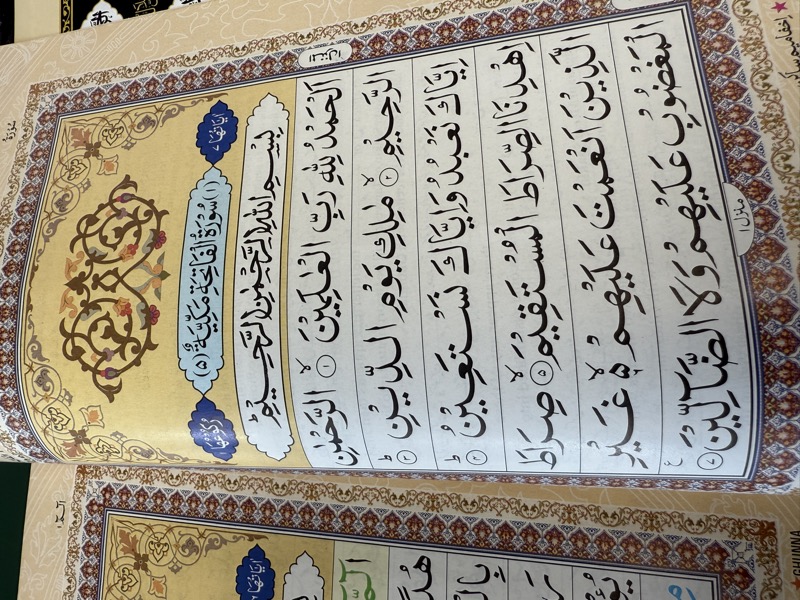 اٰيَاتُهَا ٧
(١) سُوْرَةُ الْفَاتِحَةِ مَكِّيَّةٌ (٥)
رُكُوْعُهَا
بِسْمِ اللّٰهِ الرَّحْمٰنِ الرَّحِيْمِ
اَلْحَمْدُ لِلّٰهِ رَبِّ الْعٰلَمِيْنَ ۙ ١ الرَّحْمٰنِ
الرَّحِيْمِ ۙ ٢ مٰلِكِ يَوْمِ الدِّيْنِ ؕ ٣
اِيَّاكَ نَعْبُدُ وَاِيَّاكَ نَسْتَعِيْنُ ؕ ٤
اِهْدِنَا الصِّرَاطَ الْمُسْتَقِيْمَ ۙ ٥ صِرَاطَ
الَّذِيْنَ اَنْعَمْتَ عَلَيْهِمْ ۙ۬ ٦ غَيْرِ
الْمَغْضُوْبِ عَلَيْهِمْ وَلَا الضَّآلِّيْنَ ٧
GHUNNA